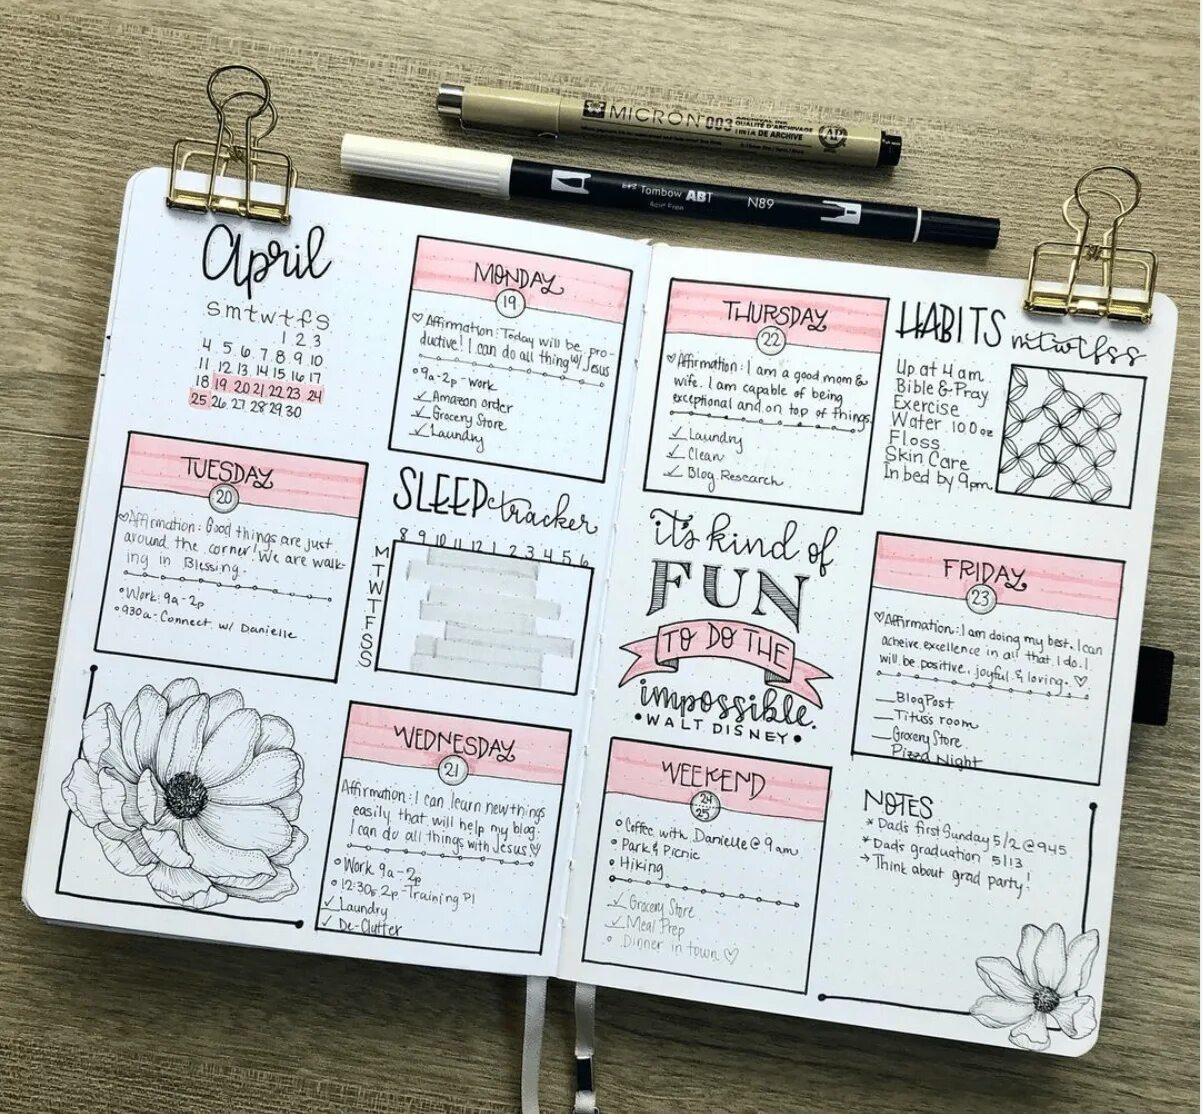 MICRON 003 ARCHIVAL INK
QUALITÉ D'ARCHIVAGE
TINTA DE ARCHIVE
AP
Tombow ABT
Acid Free
N89
April
S m t w t f S
1 2 3
4 5 6 7 8 9 10
11 12 13 14 15 16 17
18 19 20 21 22 23 24
25 26 27 28 29 30
MONDAY
19
Affirmation: Today will be pro-
ductive! I can do all thing w/ Jesus
9a-2p-work
Amazon order
Grocery Store
Laundry
TUESDAY
20
Affirmation: Good things are just
around the corner! We are walk-
ing in Blessing.
Work: 9a-2p
930a-Connect w/ Danielle
SLEEP tracker
8 9 10 11 12 1 2 3 4 5 6
M
T
W
T
F
S
S
WEDNESDAY
21
Affirmation: I can learn new things
easily that will help my blog.
I can do all things with Jesus
Work 9a-2p
Training P1
Laundry
De-Clutter
THURSDAY
22
Affirmation: I am a good mom &
wife. I am capable of being
exceptional and on top of things.
Laundry
Clean
Blog Research
HABITS m t w t f s s
Up at 4 am
Bible & Pray
Exercise
Water 100 oz
Floss
Skin Care
In bed by 9pm
it's kind of
FUN
TO DO THE
impossible.
• WALT DISNEY •
FRIDAY
23
Affirmation: I am doing my best. I can
acheive excellence in all that I do. I
will be positive, joyful & loving.
Blog Post
room
Grocery Store
Pizza Night
WEEKEND
24
25
Coffee with Danielle @ 9am
Park & Picnic
Hiking
Grocery Store
Meal Prep
Dinner in town
NOTES
* Dad's first Sunday 5/2 @ 945
* Dad's graduation 5/13
→ Think about grad party!